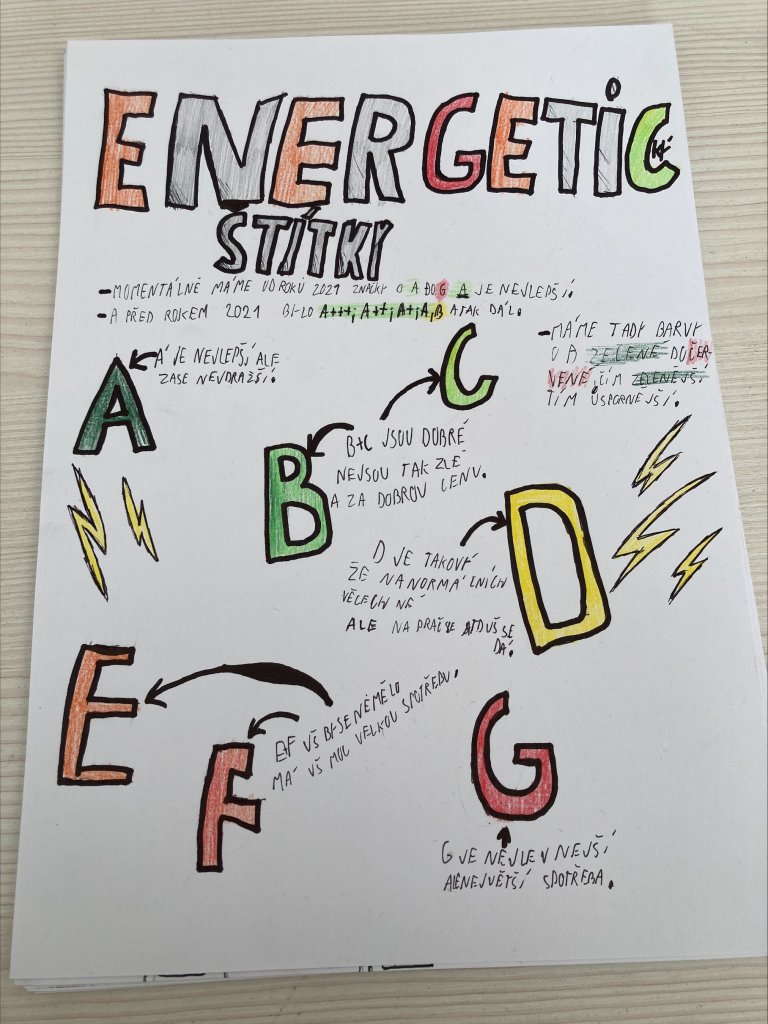 ENERGETICKÉ
ŠTÍTKY
-MOMENTÁLNĚ MÁME OD ROKU 2021 ZNAČKY O A DO G A JE NEJLEPŠÍ.
-A PŘED ROKEM 2021 BYLO A+++, A++, A+, A, B A TAK DÁL.
-MÁME TADY BARVY
O A ZELENÉ DO ČER-
VENÉ, ČÍM ZELENĚJŠÍ
TÍM ÚSPORNĚJŠÍ.
A JE NEJLEPŠÍ ALE
ZASE NEJDRAŽŠÍ.
A
C
B+C JSOU DOBRÉ
NEJSOU TAK ZLÉ
A ZA DOBROU CENU.
B
D JE TAKOVÝ
ŽE NA NORMÁLNÍCH
VĚCECH NÉ
ALE NA PRAČCE
DÁ.
D
E
EF UŠ BY SE NEMĚLO
MÁ UŠ MOC VELKOU SPOTŘEBU.
F
G
G JE NEJLEVNEJŠÍ
ALE NEJVĚTŠÍ SPOTŘEBA.